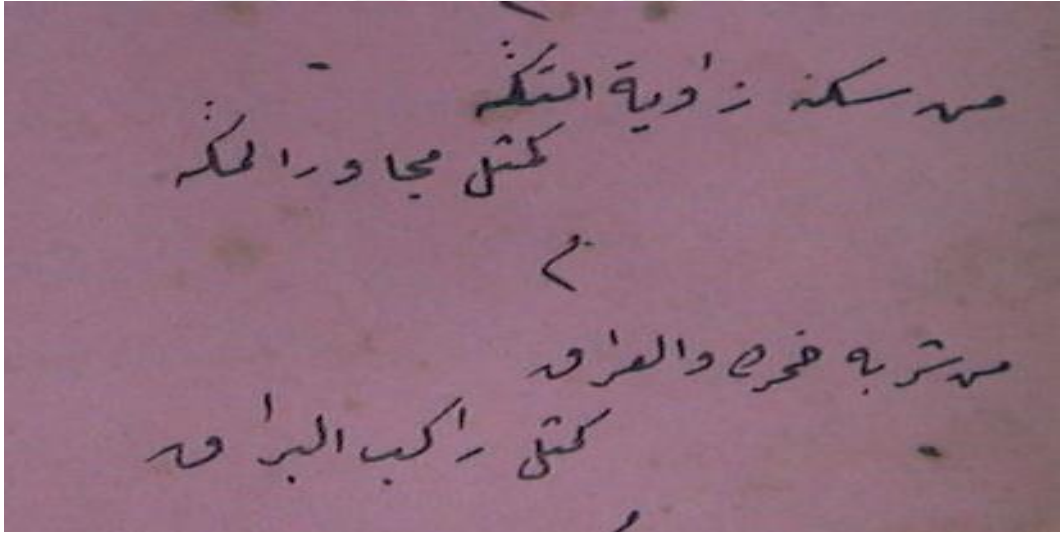 من سكنه زاوية التكه
كمثل مجاور المكه
من شربه خمره والعراق
كمثل راكب البراق